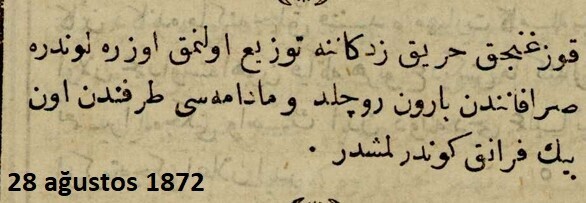 قوزغنجق حریق زدکاننه توزیع اولنمق اوزره لوندره
صرافانندن بارون روچلد و مادامه‌سی طرفندن اون
بیك فرانق کوندرلمشدر ٠
28 ağustos 1872